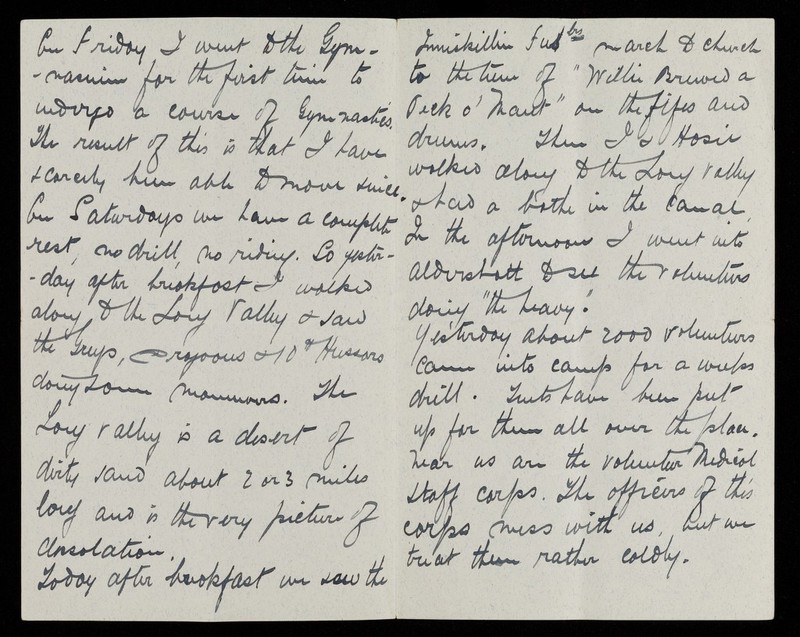 On Friday I went to the Gym-
-nasium for the first time to
undergo a course of Gymnastics.
The result of this is that I have
scarcely been able to move since.
On Saturdays we have a complete
rest, no drill, no riding. So yester-
-day after breakfast I walked
along to the Long Valley & saw
the Greys, Dragoons & 10th Hussars
doing some manuvers. The
Long Valley is a desert of
dirty sand about 2 or 3 miles
long and is the very picture of
desolation.
Today after breakfast we saw the
Inniskillin Fusbrs march to church
to the tune of "Willie Brewed a
Peck o' Maut" on the fifes and
drums. Then I & Hosie
walked along to the Long Valley
& had a bathe in the Canal.
In the afternoon I went into
Aldershott to see the volunteers
doing "the heavy".
Yesterday about 2000 volunteers
came into camp for a weeks
drill. Tents have been put
up for them all over the place.
Near us are the volunteer Medical
Staff corps. The officers of this
corps mess with us, but we
treat them rather coldly.